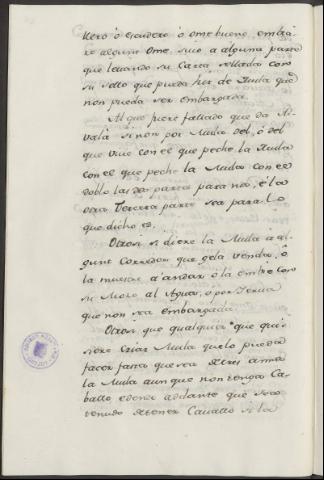 llero ó escudero ó ome bueno, embia-
re algunt Ome, suio a alguna parte
que levando su Carta sellada con
su sello que pueda hir de Mula que
non pueda ser embargada.
Al que fuere fallado que da Al-
vala sinon por Mula del, ó del
que vive con el que peche la Mula
con el que peche la Mula con el
doblo las dos partes para nos, é la
otra Tercera parte sea para lo
que dicho es.
Otrosi si diere la Mula a al-
gunt Corredor que gela venda, ó
la muestre a andar o la embie con
su Mozo al Agua, o por Yerva
que non sea embargada.
Otrosi que qualquier que qui-
siere criar Mula quelo pueda
facer fasta que sea de tres annos
la Mula aun que non tenga Ca-
ballo e dende adelante que sea
tenudo de tener Cavallo o la